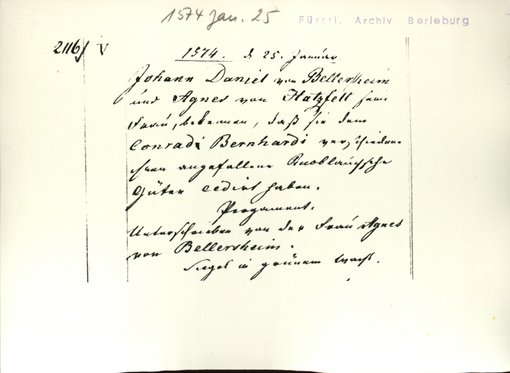 1574 Jan. 25
Fürstl. Archiv Berleburg
2116/ V
1574. d. 25. Januar
Johann Daniel von Bellersheim
und Agnes von Hatzfelt sein
Frau, bekennen, daß sie dem
Conradi Bernhardi verschiedene
ihnen angefallene Knoblauchsche
Güter cedirt haben.
Pergament.
Unterschrieben von der Frau Agnes
von Bellersheim.
Siegel in grünem Wachs.